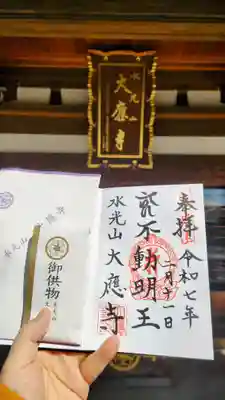 水光山
大應寺
奉拝
令和七年
二月十一日
不動明王
水光山 大應寺
水光山
御供物